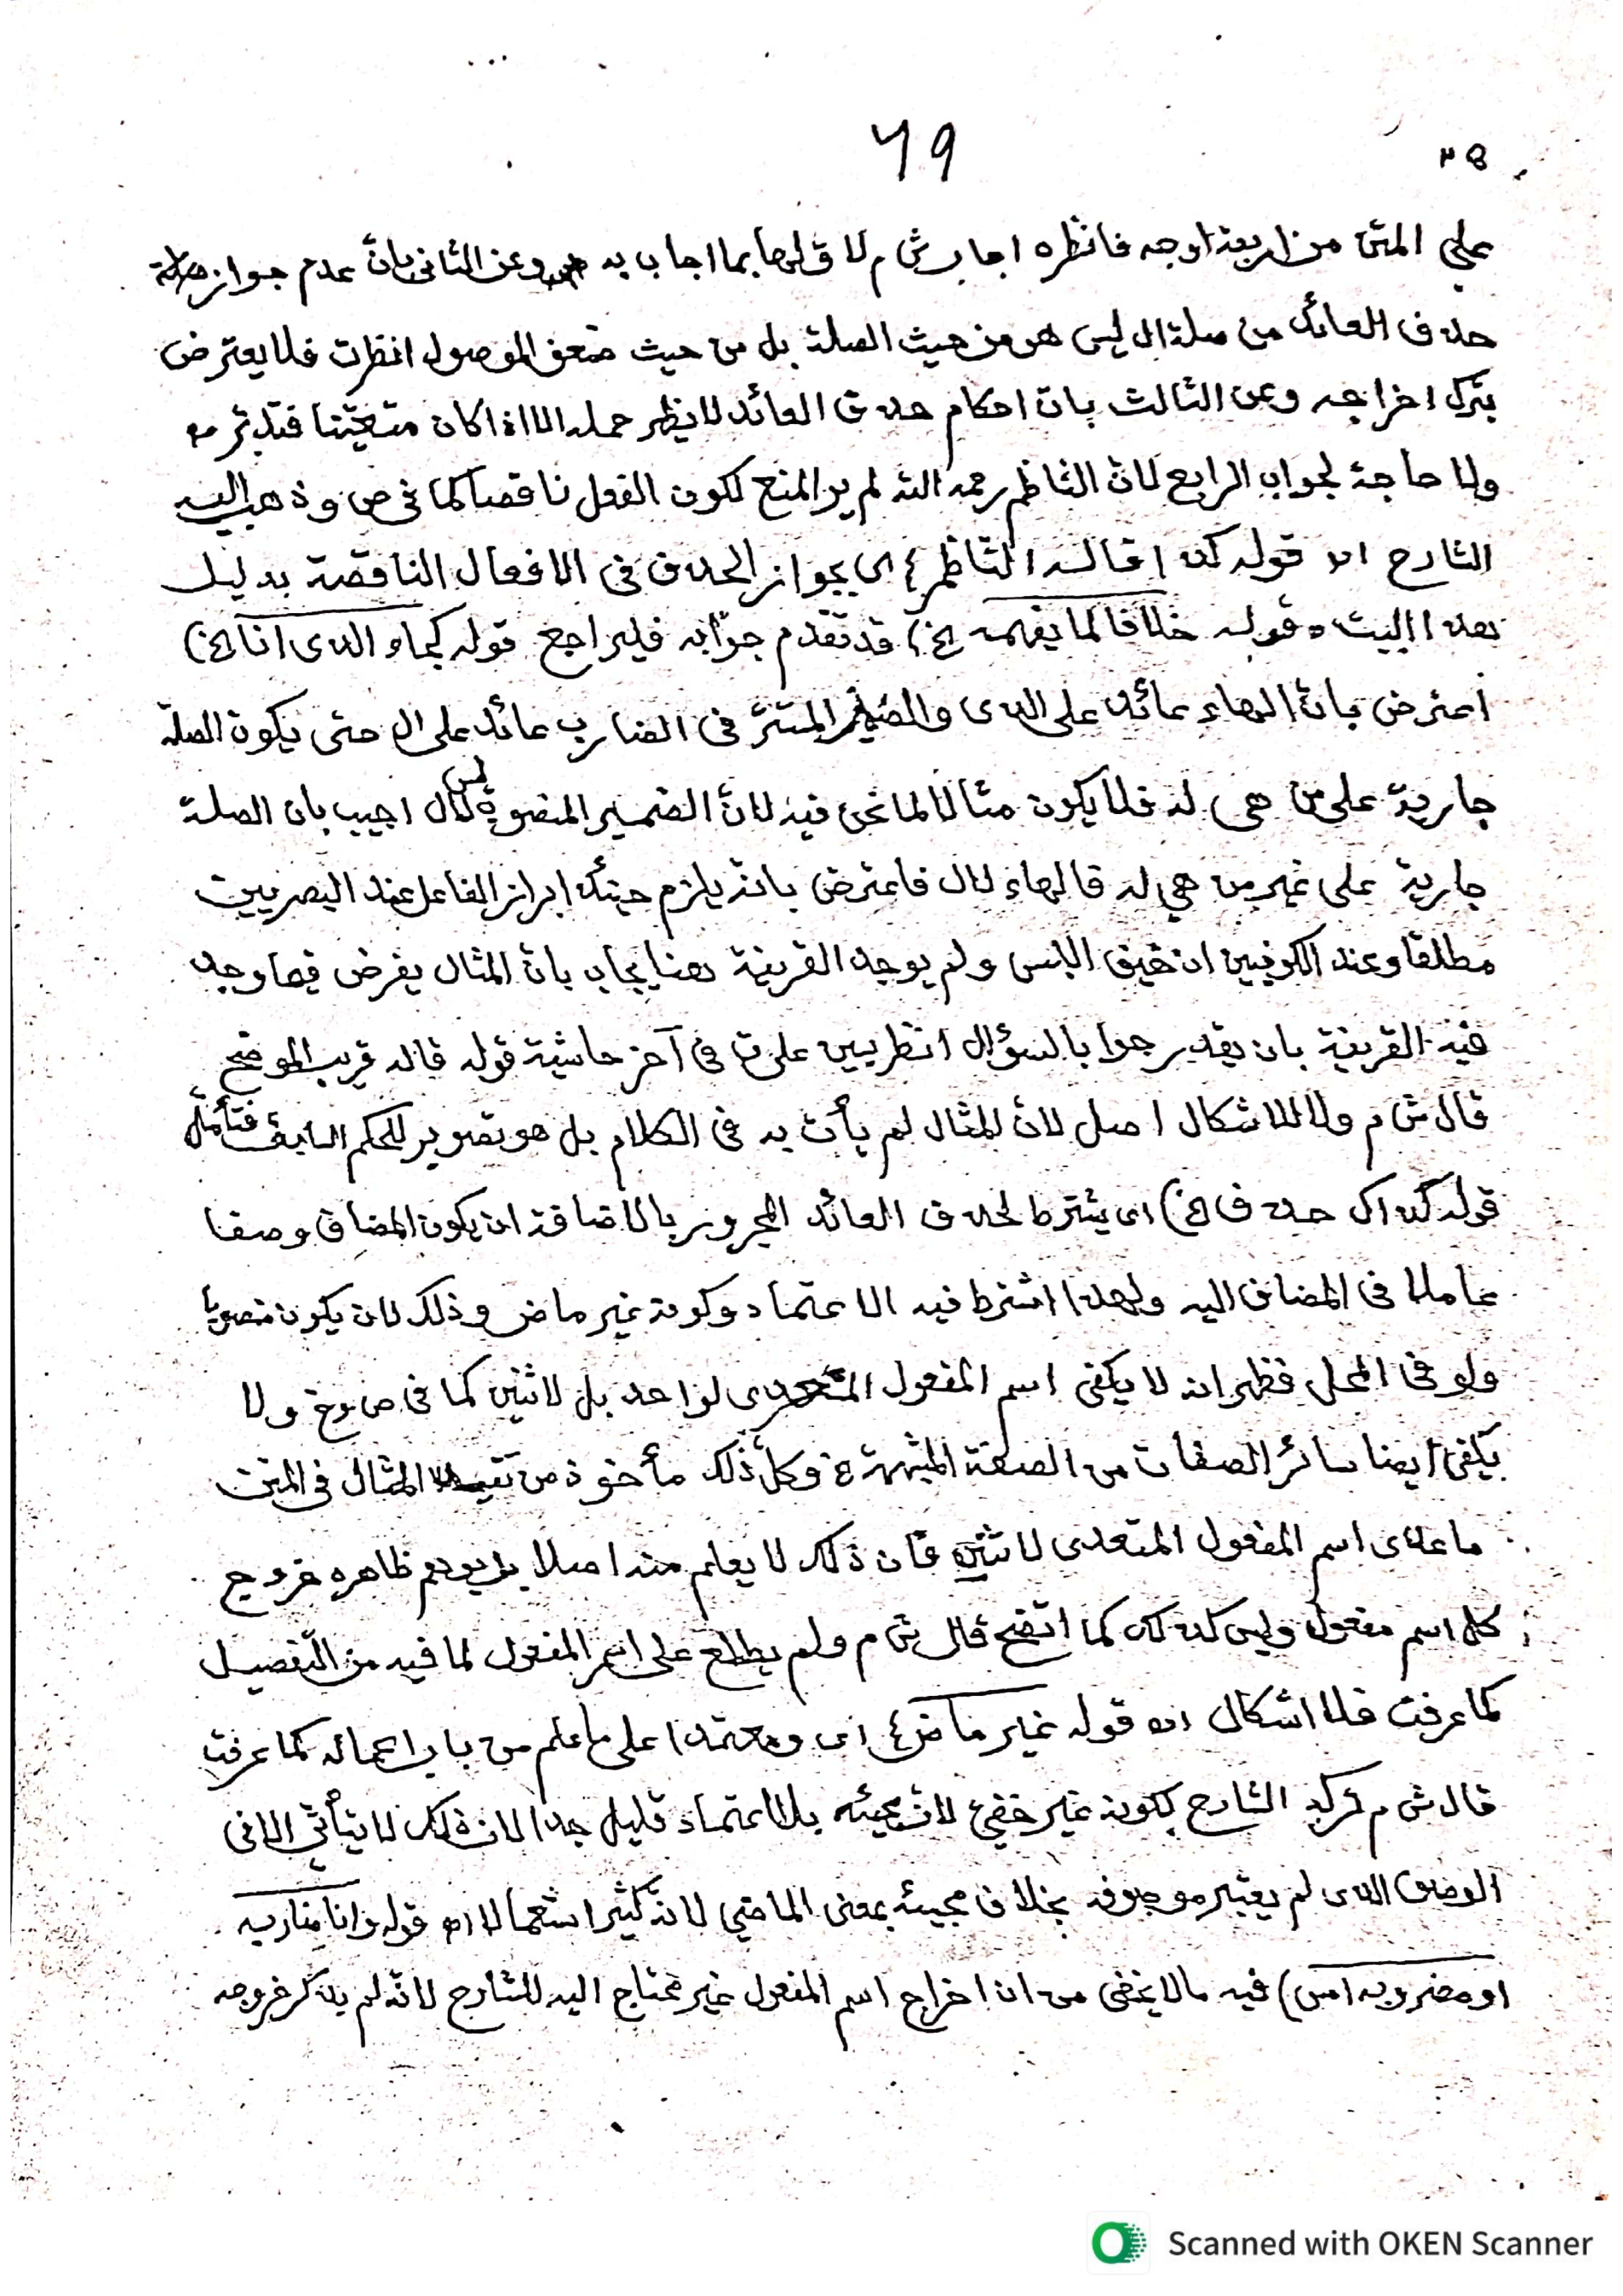 ٦٩
٣٥
على المتن من اربعة اوجه فانظره اجاب ش م لاولها بما اجاب به وعن الثانى بانّ عدم جواز
حذف العائد من صلة ال ليس هو من حيث الصلة بل من حيث ضعف الموصول انظرت فلا يعترض
بترك اخراجه وعن الثالث بان احكام حذف العائد لا يظهر حمله الا اذا كان متعيّنا فتدبّر
ولا حاجة لجواب الرابع لانّ الناظم رحمه الله لم ير المنع لكون الفعل ناقصا كما فى ص وذهب اليه
الشارح اه قوله كذا قاله النّاظم) اى بجواز الحذف فى الافعال الناقصة بدليل
هذا البيت وقوله خلافا لما يفهمه الخ) قد تقدم جوابه فليراجع قوله كجاء الذى انا الخ)
اعترض بانّ الهاء عائد على الذى والضمير المستتر فى الضارب عائد على ال حتى يكون الصلة
جارية على من هى له فلا يكون مثالا لما نحن فيه لانّ الضمير المنصوب ليس لال اجيب بان الصلة
جارية على غير من هى له فالهاء لال فاعترض بانه يلزم حينئذ ابراز الفاعل عند البصريين
مطلقا وعند الكوفيين ان خيف اللبس ولم يوجد القرينة هنا يجاب بانّ المثال يفرض فيما وجد
فيه القرينة بان يقدر جوابا لسؤال انظر يس على ق فى آخر حاشية قوله قاله قريب الموضح
قال ش م ولا للاشكال اصل لانّ المثال لم يأت به فى الكلام بل هو تصوير للحكم السابق فتأمّل
قوله كذاك حذف الخ) اى يشترط لحذف العائد المجرور بالاضافة ان يكون المضاف وصفا
عاملا فى المضاف اليه ولهذا اشترط فيه الاعتماد وكونه غير ماض وذلك لان يكون منصوبا
ولو فى المحل فظهر انه لا يكفى اسم المفعول المتعدى لواحد بل لاثنين كما فى ص وغ ولا
يكفى ايضا سائر الصفات من الصفة المشبهة وكلّ ذلك مأخوذ من المثال فى المتن
ما عدى اسم المفعول المتعدى لاثنين فان ذلك لا يعلم منه اصلا بل يوهم ظاهره خروج
كل اسم مفعول وليس كذلك كما اتّضح قال ش م ولم يطلع على اسم المفعول لما فيه من التّفصيل
كما عرفت فلا اشكال اه قوله غير ماض) اى ومعتمدا على ما علم من باب اعماله كما عرفت
قال ش م تركه الشارح لكونه غير خفىّ لانّ مجيئه بلا اعتماد قليل جدا لان ذلك لا يتأتّى الا فى
الوصف الذى لم يعتبر موصوفه بخلاف مجيئه بمعنى الماضى لانه كثير استعمالا اه قوله وانا ضاربه
او مضروبه امس) فيه ما لا يخفى من ان اخراج اسم المفعول غير محتاج اليه للشارح لانّه لم يذكر خروجه
Scanned with OKEN Scanner